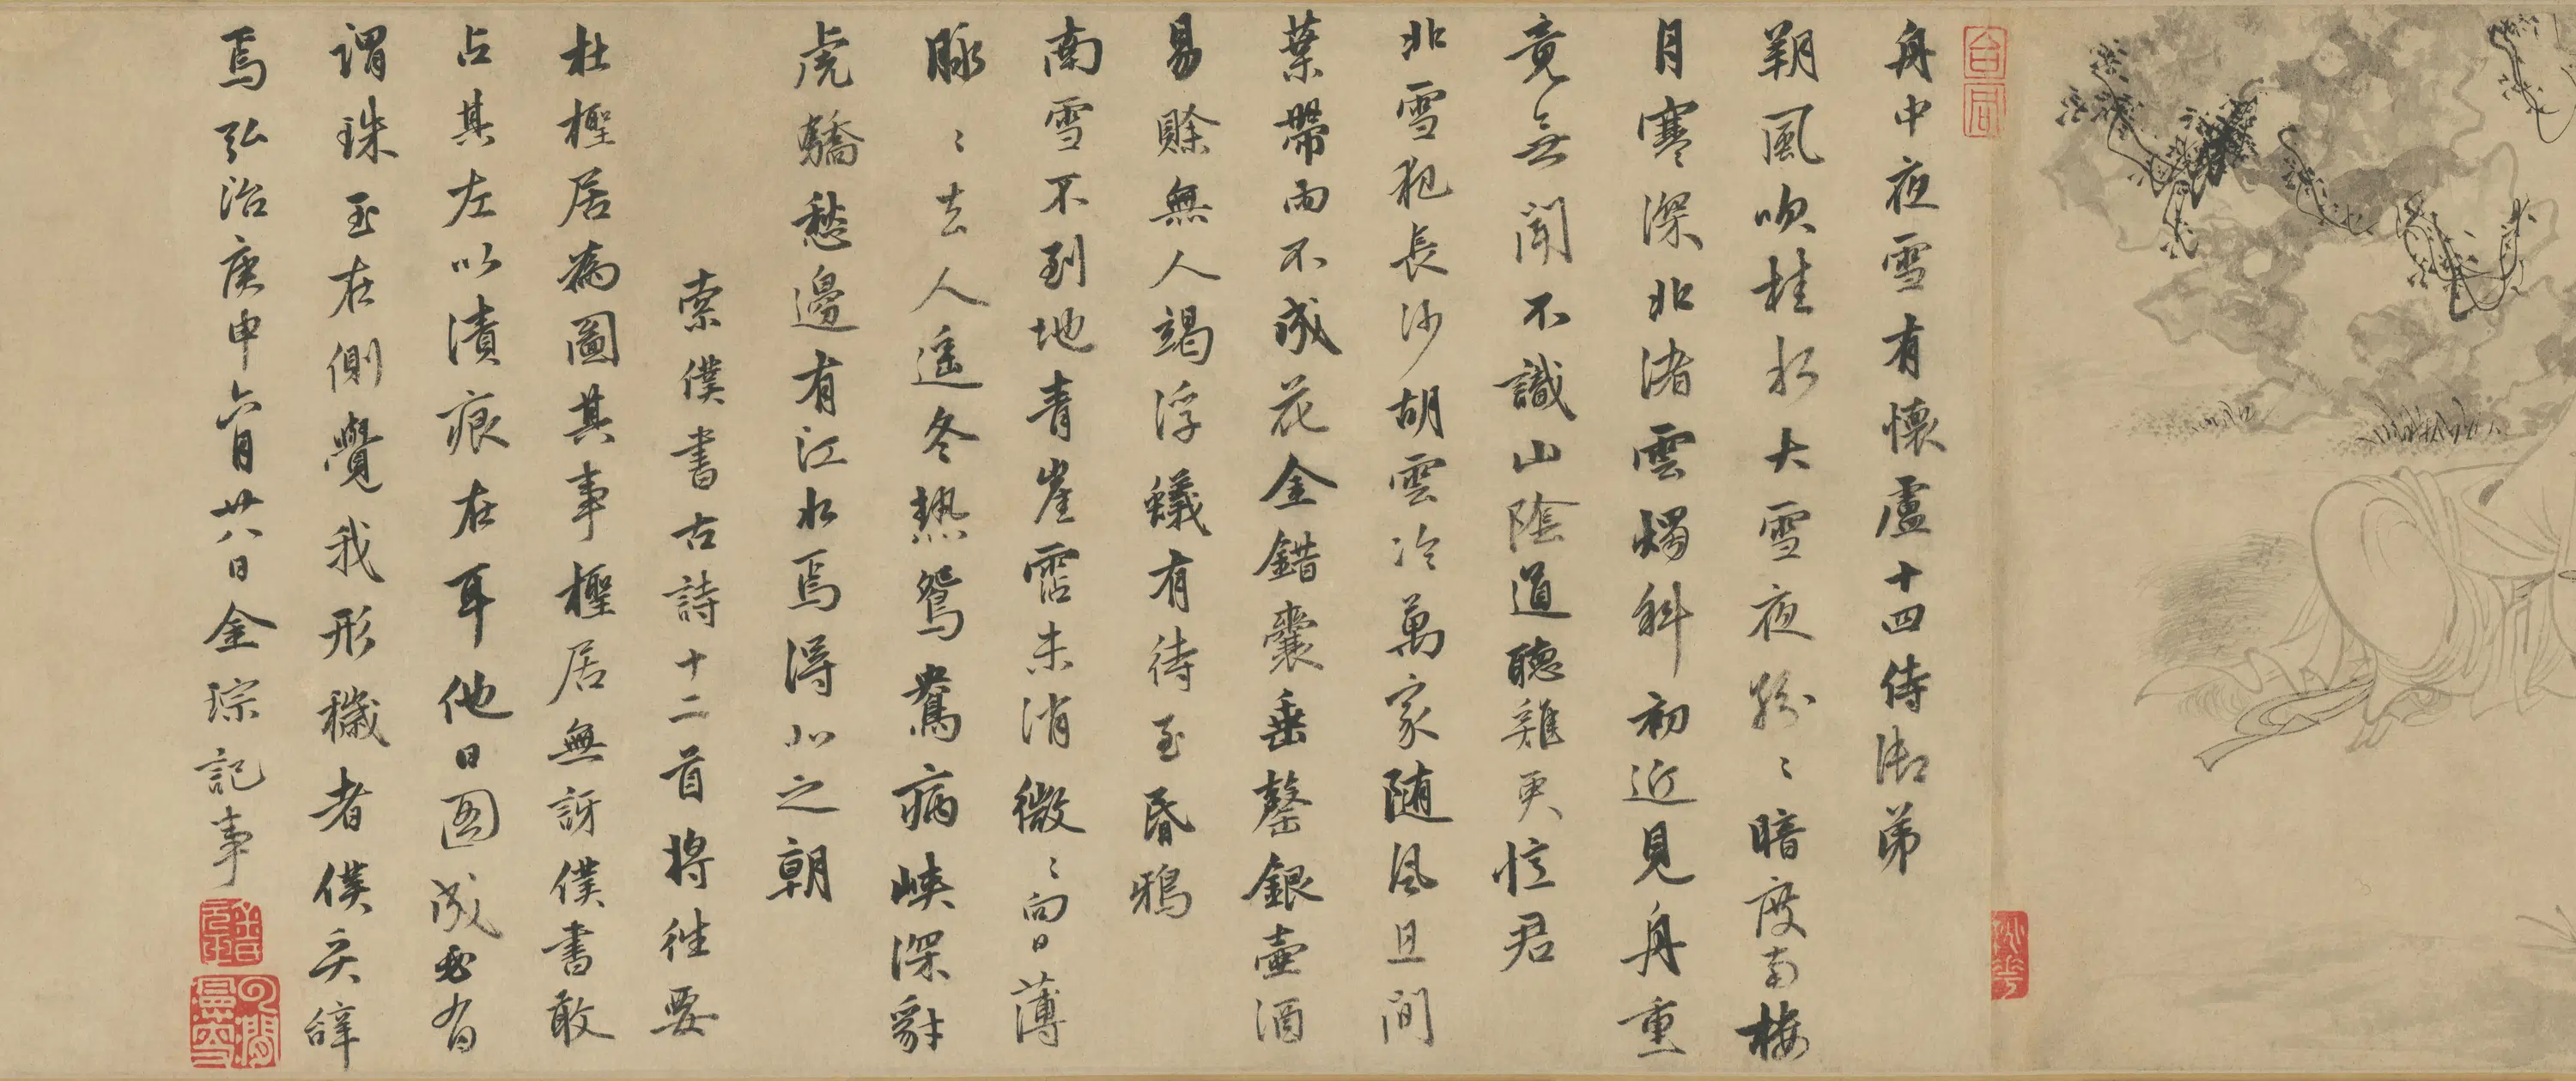 舟中夜雪有懷盧十四侍御弟
朔風吹桂水大雪夜紛〻暗度南樓
月寒深北渚雲燭斜初近見舟重
竟無聞不識山陰道聽雞更憶君
北雪犯長沙胡雲冷萬家隨風且間
葉帶雨不成花金錯囊垂罄銀壺酒
易賒無人竭浮蟻有待至昏鴉
南雪不到地青崖霑未消微〻向日薄
脉〻去人遥冬熱鴛鴦病峽深豺
虎驕愁邊有江水焉得北之朝
索僕書古詩十二首將徃要
杜檉居為圖其事檉居無訝僕書敢
占其左以漬痕在耳他日圖成必有
謂珠玉在側覺我形穢者僕奚辭
焉弘治庚申六月廿八日金琮記事